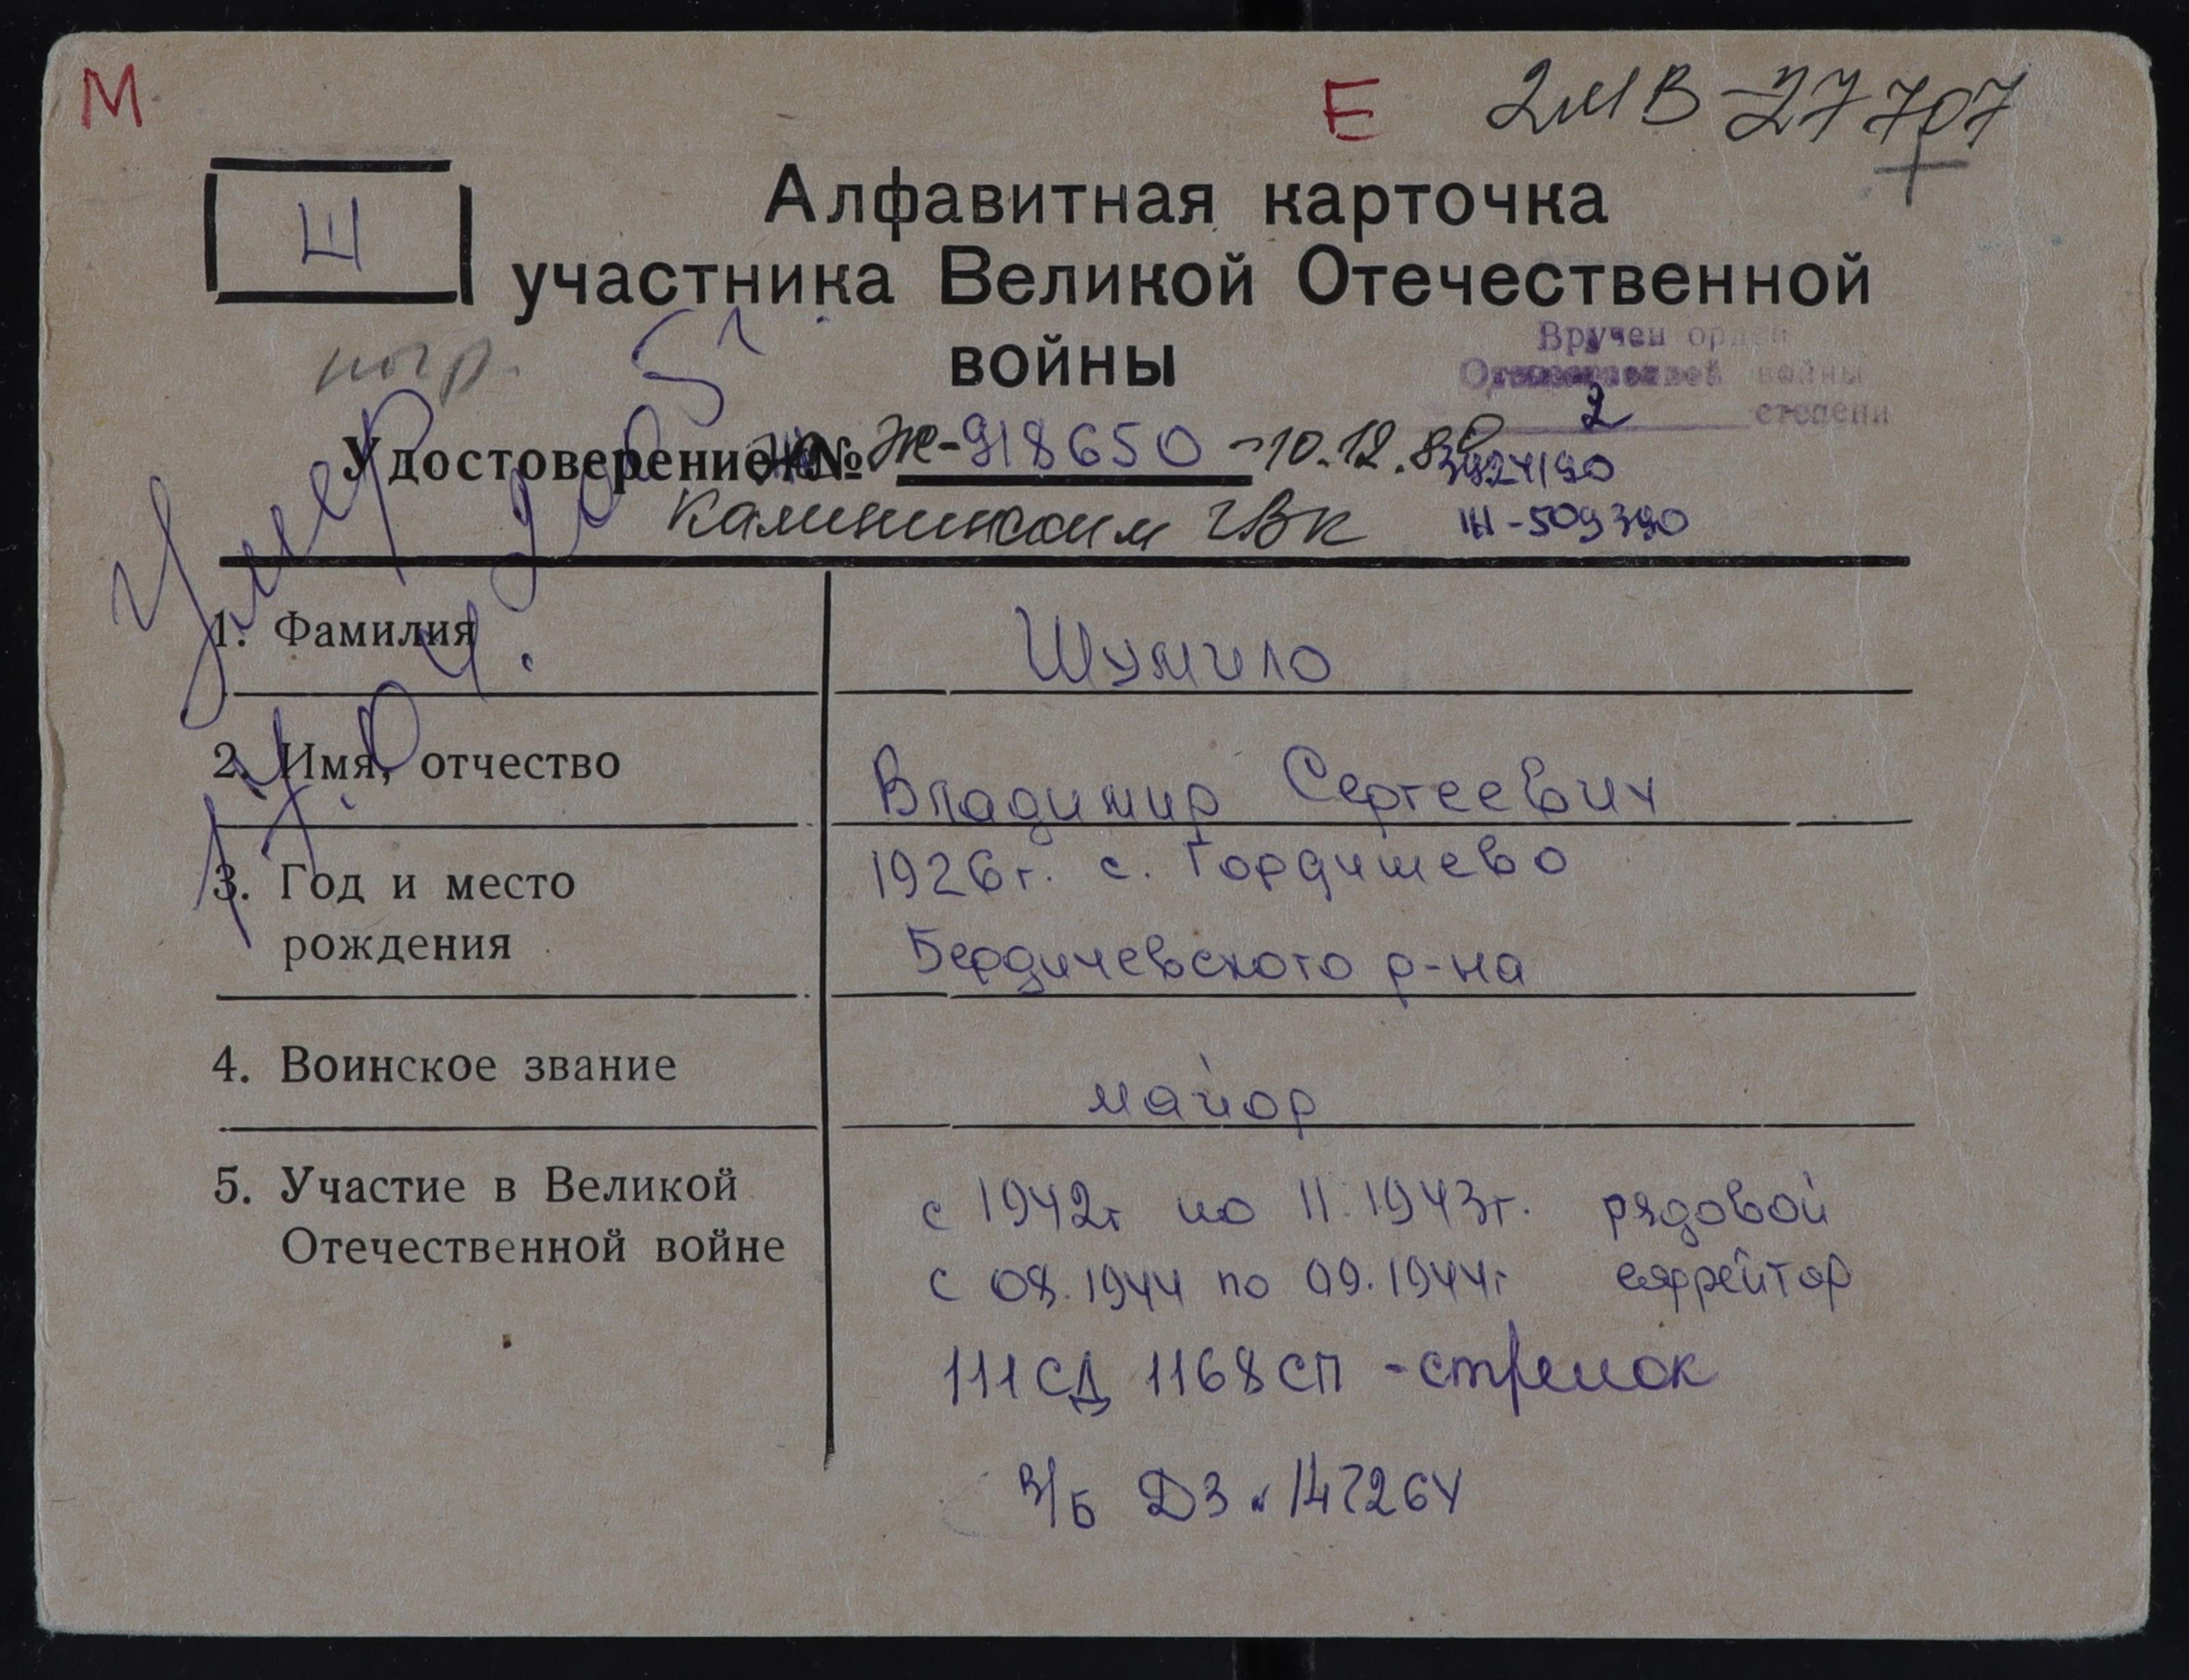 М Е 2МВ-27707
Ш
Алфавитная карточка
участника Великой Отечественной
войны
Вручен орден
Отечественной войны
2 степени
Удостоверение № Ж-918650 -10.12.80
Калининским ГВК
Умер
1. Фамилия Шумило
2. Имя, отчество Владимир Сергеевич
3. Год и место 1926г. с. Гордишево
рождения Бердичевского р-на
4. Воинское звание майор
5. Участие в Великой с 1942г по 11.1943г. рядовой
Отечественной войне с 08.1944 по 09.1944г ефрейтор
111 СД 1168 СП - стрелок
В/б ДЗ №